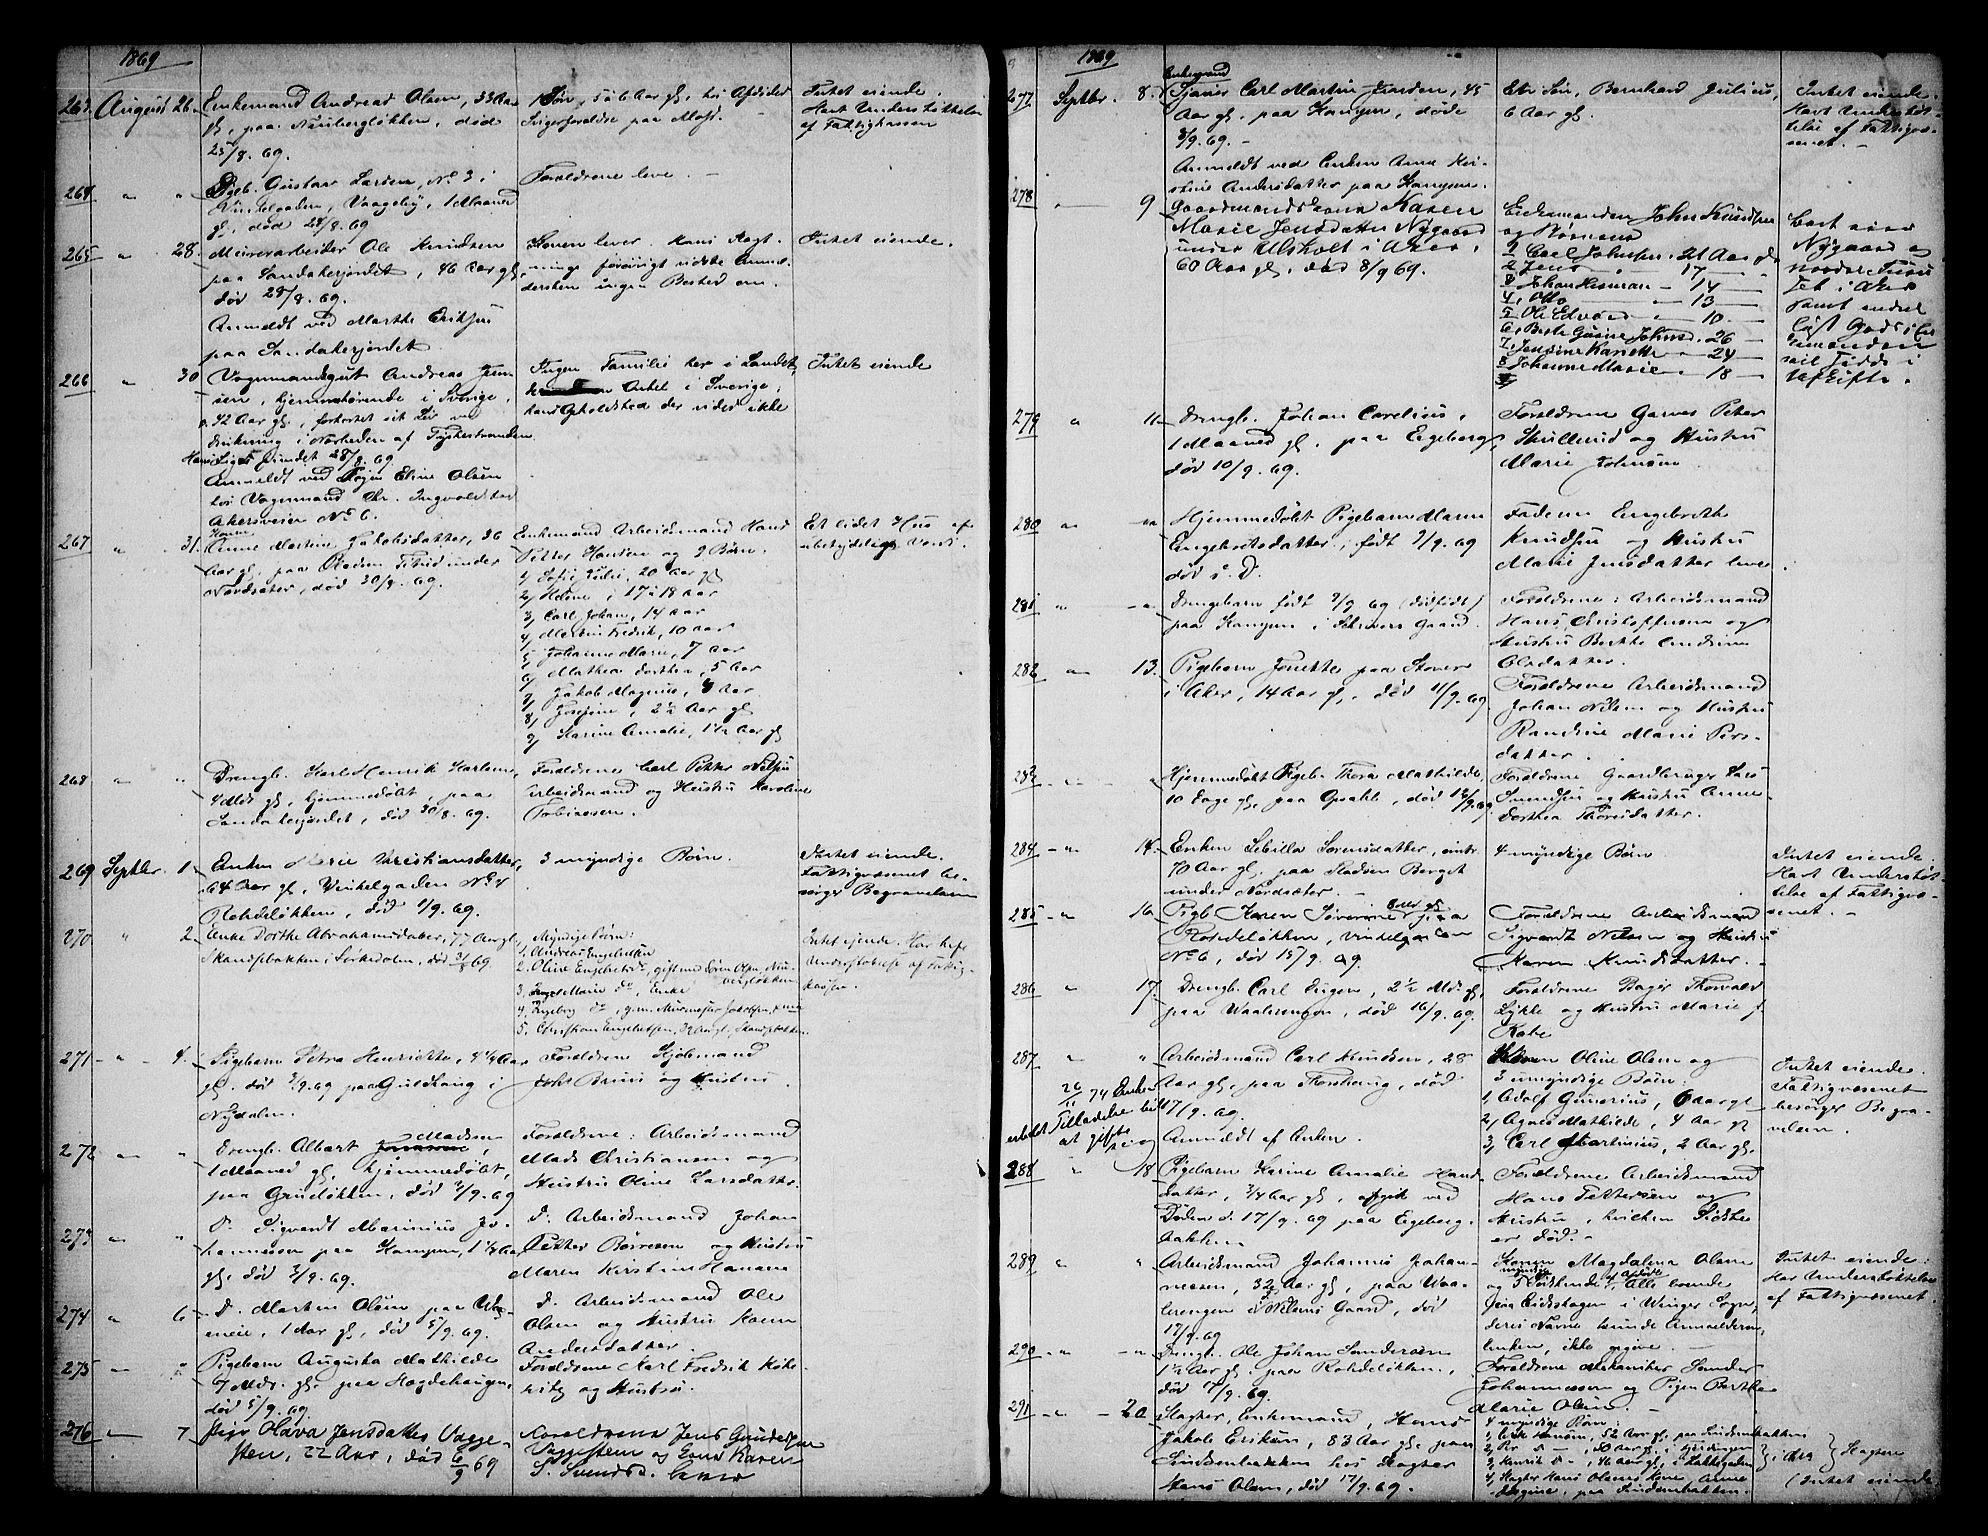 1869
263. August 26. Enkemand Andreas Olsen, 33 Aar
gl, paa Neubergløkken, død
25/8. 69.
1 Søn, 5 à 6 Aar gl, hos Afdødes
Svigerforældre paa
Intet eiende.
Havt Understøttelse
af Fattigkassen
264 " " Pigeb. Gustava Larsen, No 3 i
Vaageby, 1 Maaned
gl, død 24/8. 69
Forældrene leve. -
265 " 28. Murerarbeider Ole Knudsen
paa Sandakerjordet, 46 Aar gl,
død 28/8. 69.
Anmeldt ved Marthe Eriksen
paa Sandakerjordet
Konen lever. Hans Slægt-
ninge forøvrigt vidste Anmel-
dersken ingen Besked om.
Intet eiende.
266 " 30 Vognmandsgut Andreas
hjemmehørende i Sverige,
42 Aar gl, forkortet sit Liv ved
Drukning i Nærheden af Tyskestranden
Hans Lig fundet 28/8. 69
Anmeldt ved Pigen Eline Olsen
hos Vognmand Chr. Ingvoldstad
Akersveien No 6.
Ingen Familie her i Landet,
Onkel i Sverige,
hans Opholdsted der vides ikke
Intet eiende
267 " 31. Konen
Anne Martine Jakobsdatter, 36
Aar gl, paa Pladsen under
Nordsæter, død 30/8. 69.
Enkemand Arbeidsmand Hans
Petter Hansen og 9 Børn.
1, Sofie Julie, 20 Aar gl
2, Helene, i 17 à 18 Aar
3, Carl Johan, 14 Aar
4, Martin Fredrik, 10 Aar
5, Johanne Marie, 7 Aar
6, Mathea Dorthea, 5 Aar
7, Jakob Magnus, 4 Aar
8, Josefine, 2 1/2 Aar gl
9, Karine Amalie, 1 1/2 Aar gl
Et lidet Hus af
ubetydelig Værd.
268 " " Drengb. Karl Henrik Karlsen,
4 Mdr gl, hjemmedøbt, paa
Sandakerjordet, død 30/8. 69.
Forældrene Carl Petter Nilsen
Arbeidsmand og Hustru Karoline
Tobiassen.
269 Septbr. 1. Enken Marie Christiansdatter,
64 Aar gl, Vinkelgaden No 4
Rodeløkken, død 1/9. 69.
3 myndige Børn.
Intet eiende.
Fattigvæsenet be-
sørger Begravelsen
270 " 2 Enke Dorthe Abrahamsdatter, 77 Aar gl,
Skandsebakken i Sørkedalen, død 31/8 69.
Myndige Børn:
1, Andreas Engebretsen
2. Oline Engebretsd., gift med Søren Olsen, Neu-
bergløkken
3, Inger Marie do, Enke
4, Ingeborg do, g. m. Murmester Jakobsen,
5, Christian Engebretsen, 32 Aar gl. Skandsebakken
Intet ejende. Har havt
Understøttelse af Fattig-
kassen.
271 - " - 4. Pigebarn Petra Henriette, 4 1/4 Aar
gl. død 2/9. 69 paa Guldhaug i
Nydalen.
Forældrene
Bruus og Hustru.
272 " " Drengb. Albert Madsen,
1 Maaned gl, hjemmedøbt,
paa Grüneløkken, død 2/9. 69
Forældrene: Arbeidsmand
Mads Christiansen og
Hustru Oline Larsdatter.
273 " " D. Sigvardt Marinius Jo-
hannessen paa Kampen, 1 1/4 Aar
gl, død 3/9. 69.
D. Arbeidsmand Johan
Petter Børresen og Hustru
Maren Kirstine Hansen
274 " 6 D. Morten Olsen paa
1 Aar gl, død 5/9. 69.
D. Arbeidsmand Ole
Olsen og Hustru Karen
Andersdatter.
275 " " Pigebarn Augusta Mathilde
7 Mdr. gl. paa Hagdehaugen,
død 5/9. 69
Forældrene Karl Fredrik
og Hustru.
276 " 7 Pige Olava Jensdatter Vagge-
sten, 22 Aar, død 6/9 69
Forældrene Jens Gundersen
Vaggesten og Karen
S. Svendsd.
1869
277 Septbr. 8. Enkemand
Carl Martin Linden, 45
Aar gl. paa Kampen, døde
8/9. 69. -
Anmeldt ved Enken Anne
Andersdatter paa Kampen.
Een Søn, Bernhard Julius,
6 Aar gl.
Intet eiende.
Havt Understøt-
telse af Fattigvæ-
senet. -
278 9 Gaardmandskone Karen
Marie Jensdatter Nygaard
under Ulsholt i Aker,
60 Aar gl, død 8/9 69.
Enkemanden John Knudsen
og Børnene
1, Carl Johnsen, 21 Aar gl
2, Jens " 17 -
3, Johan Herman - 14 -
4, Otto - 13 -
5, Ole Edvard - 10 -
6, Berthe Gusine Johnsd. 26 -
7, Jensine Karethe - 24 -
8, Johanne Marie - 18 -
Nygaard
i Aker
samt endeel
Løst Gods. En-
kemanden
vil sidde i
Uskifte.
279 " 11. Drengb. Johan Cornelius,
1 Maaned gl. paa Egeberg,
død 10/9. 69.
Forældrene Garver Peter
Skullerud og Hustru
Marie Johnsen
280 " " Hjemmedøbt Pigebarn Maren
Engebretsdatter, født 9/9. 69
død s. D.
Faderen Engebreth
Knudsen og Hustru
Marie Jensdatter lever.
281 " " Drengebarn født 9/9. 69 (dødfødt)
paa Kampen i Skrivers Gaard.
Forældrene: Arbeidsmand
Hans Christoffersen og
Hustru Berthe Andrine
Olsdatter.
282 " 13. Pigebarn Josette paa Stovner
i Aker, 14 Aar gl, død 11/9. 69
Forældrene Arbeidsmand
Johan Nilsen og Hustru
Randine Marie Pers-
datter.
283 " " Hjemmedøbt Pigeb. Thora Mathilde,
10 Dage gl, paa Opsahl, død 12/9. 69
Forældrene Gaardbruger Lars
Svendsen og Hustru Anne
Dorthea Thoresdatter.
284 - " 14. Enken Sibilla Sørensdatter, omtr.
70 Aar gl, paa Pladsen Berget
under Nordsæter. -
4 myndige Børn
Intet eiende.
Havt Understøt-
telse af Fattigvæ-
senet. -
285 - " 16. Pigb. Karen Severine paa
Rodeløkken, Vinkelgaden
No 6, død 15/9. 69.
Forældrene Arbeidsmand
Sigvardt Nilsen og Hustru
Maren Knudsdatter. -
286 " 17. Drengb. Carl Eugen, 2 1/2 Mdr. gl,
paa Waalerengen, død 16/9. 69
Forældrene Bager Thorvald
Lykke og Hustru Marie f.
Kobe
287 " " Arbeidsmand Carl Knudsen, 28
Aar gl, paa Torshaug, død
17/9. 69.
Anmeldt af Enken.
26/11 74 Enken
erholdt Tilladelse til
at gifte
sig
Konen Oline Olsen og
3 umyndige Børn.
1, Adolf Gunerius, 6 Aar gl
2, Agnes Mathilde, 4 Aar gl
3, Carl Martinius, 2 Aar gl.
Intet eiende.
Fattigvæsenet
besørger Begra-
velsen.
288 " 18. Pigebarn Karine Amalie Hans-
datter, 3/4 Aar gl, afgik ved
Døden d. 17/9. 69 paa Egeberg-
bakken
Forældrene Arbeidsmand
Hans Pettersen og
Hustru, hvilken Sidste
er død. -
289 " " Arbeidsmand Johannes Johan-
nessen, 32 Aar gl, paa Waa-
lerengen i Nilsens Gaard, død
17/9. 69
Konen Magdalena Olsen
og 5 myndige Sødskende af Afdøde, alle boende
paa Eidskogen i Winger Sogn,
deres Navne kunde Anmelderen,
Enken, ikke opgive. -
Intet eiende.
Har Understøttelse
af Fattigvæsenet.
290 - " - " Drengb. Ole Johan Sandersen
1 1/2 Aar gl. paa Rodeløkken,
død 17/9. 69.
Forældrene Mekaniker Sander
Johannessen og Pigen Berthe
Marie Olsen. -
291 - " - 20 Slagter, Enkemand, Hans
Jakob Eriksen, 83 Aar gl, paa
Lindernbakken hos Slagter
Hans Olsen, død 17/9. 69.
4 myndige Børn:
1, Erik Hansen, 52 Aar gl, paa Lindernbakken
2, Per D - , 50 Aar gl, i
3, Henrik D - , 46 Aar gl, i Bakkegaden
4, Slagter Hans Olsens Kone, Anne
paa Lindernbakken.
Slagter
(Intet eiende.